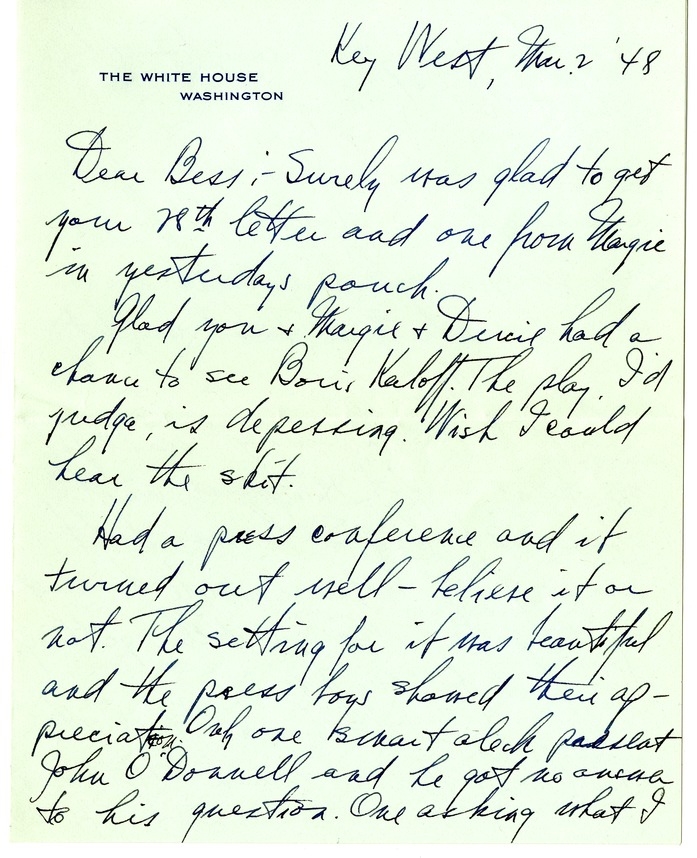 Key West, Mar. 2 '48
THE WHITE HOUSE
WASHINGTON
Dear Bess:- Surely was glad to get
your 28th letter and one from Margie
in yesterdays pouch.
Glad you & Margie & Ducie had a
chance to see Boris Karloff. The play, I'd
judge, is depessing. Wish I could
hear the skit.
Had a press conference and it
turned out well - believe it or
not. The setting for it was beautiful
and the press boys showed their ap-
preciation. Only one smart aleck present
John O'Donnell and he got no answer
to his question. One asking what I